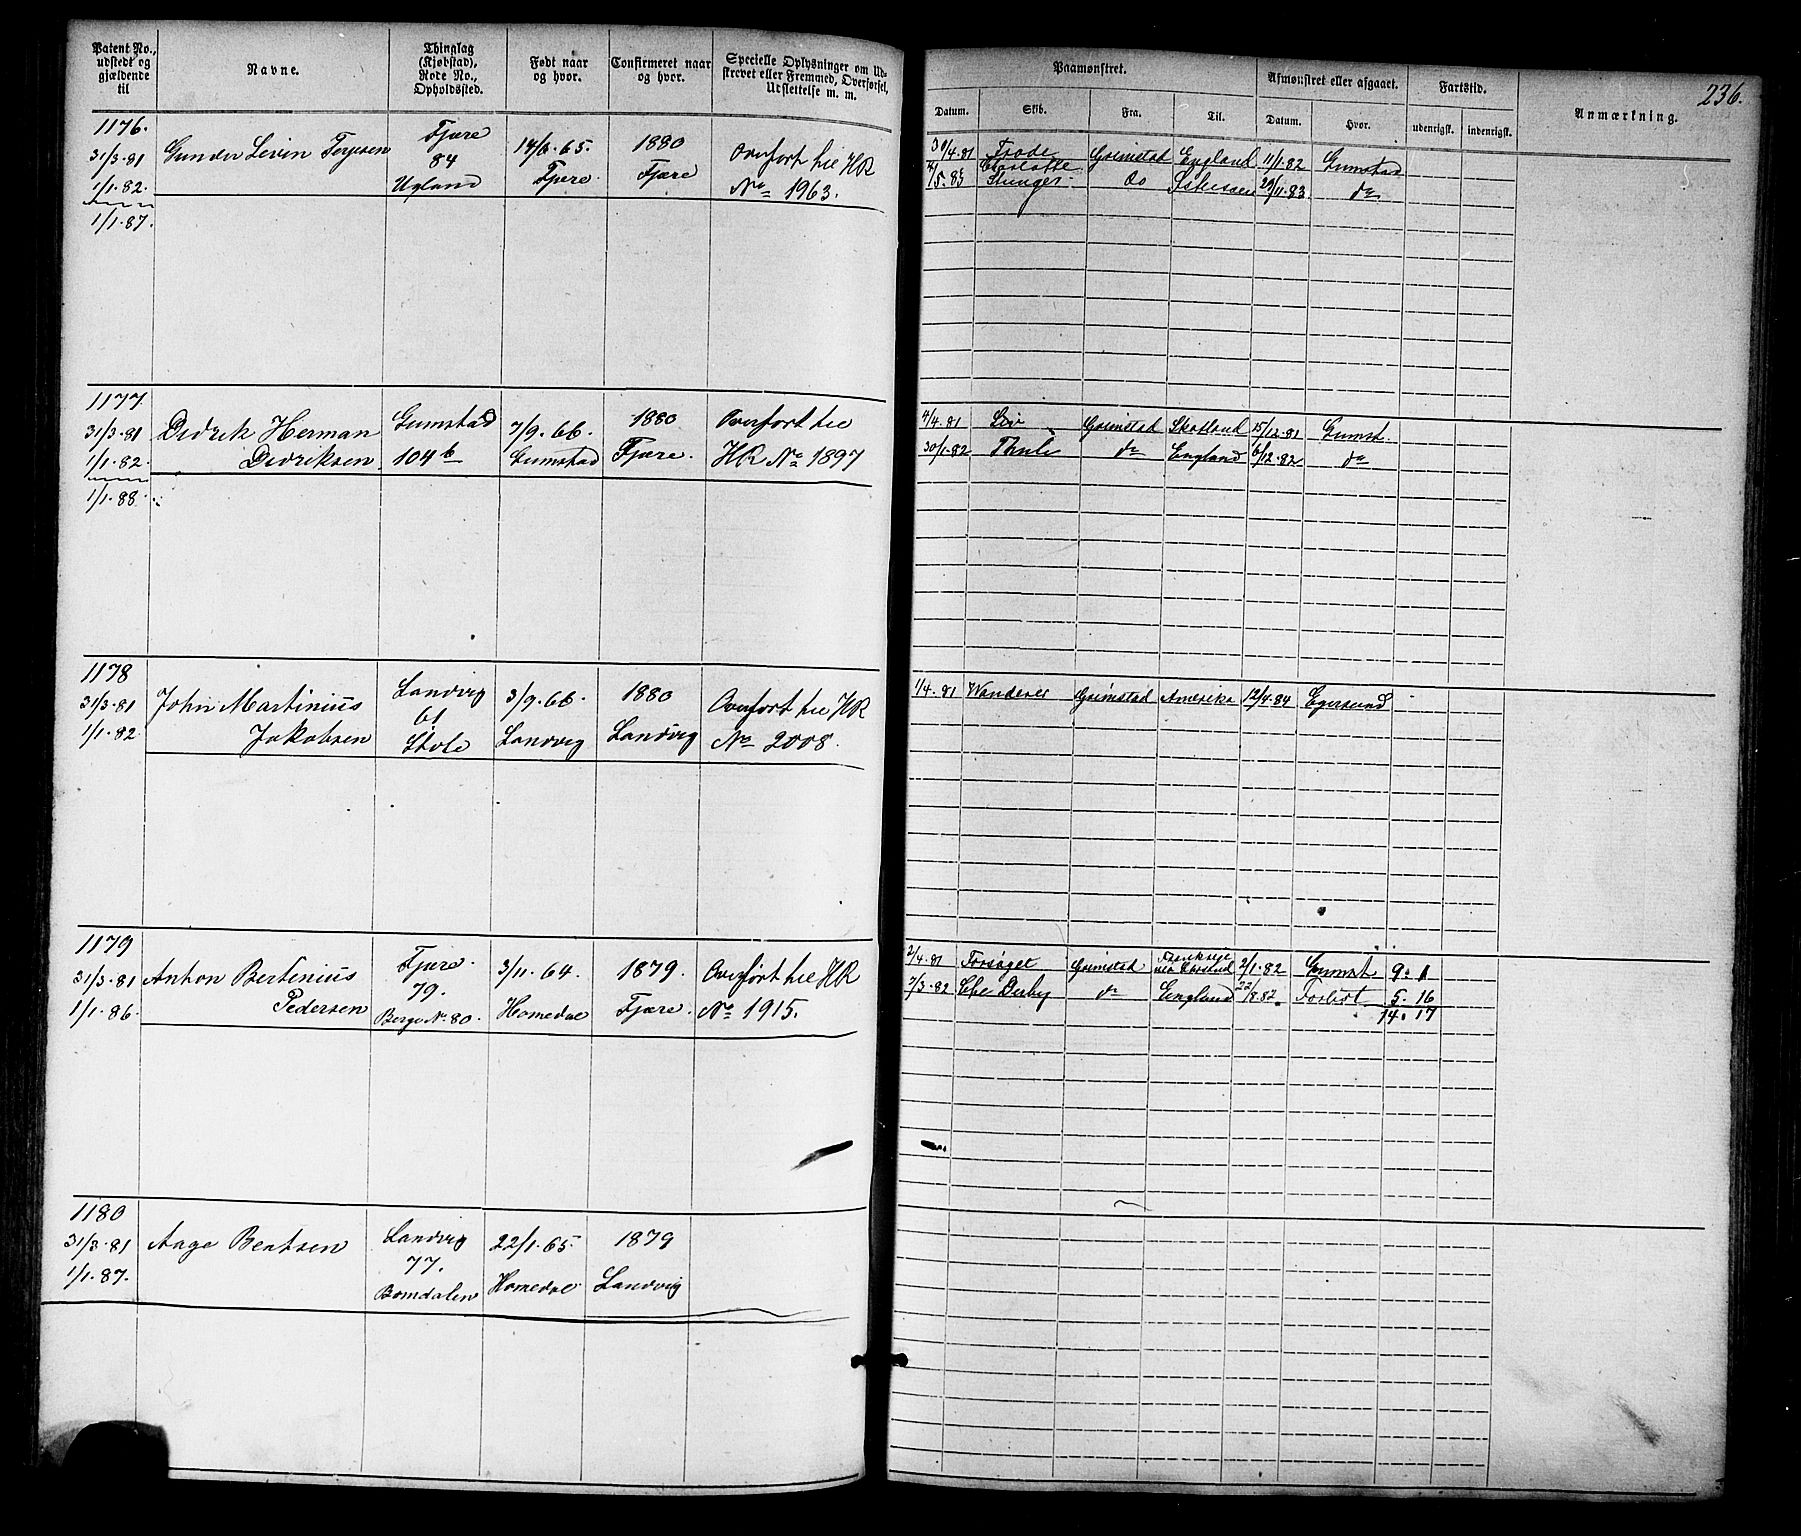 Patent No., udstedt og gjældende til
Navne.
Thinglag (Kjøbstad), Rode No., Opholdssted.
Født naar og hvor.
Confirmeret naar og hvor.
Specielle Oplysninger om Udskrevet eller Fremmed, Overførsel, Udslettelse m. m.
Paamønstret.
Afmønstret eller afgaaet.
Fartstid.
Anmærkning.
236.
Datum.
Skib.
Fra.
Til.
Datum.
Hvor.
udenrigsk.
indenrigsk.
1176.
31/3.81
1/1.82.
1/1.87.
Gunder Levin Terjesen
Fjære
84
Ugland
65.
Fjære.
1880
Fjære
Overført til HR
No 1963.
30/4.81 Frode Grimstad England 11/1.82 Grimstad
5.83 do 29/11.83 do
1177.
31/3.81
1/1.82.
1/1.88.
Didrik Herman
Didriksen
Grimstad
104 b
7/9.66.
Grimstad
1880
Fjære.
Overført til
HR No 1897
4/4.81 Liv Grimstad Skotland 15/12.81 Grimst.
30/1.82 Thule do England 6/12.82 do
1178
31/3.81
1/1.82.
John Martinius
Jakobsen
Landvig
61
3/9.66.
Landvig
1880
Landvig
Overført til HR
No 2008.
1/4.81 Wanderer Grimstad Amerika 12/4.84 Egersund
1179
31/3.81
1/1.86.
Anton Bertinius
Pedersen
Fjære.
79.
Berge No 80.
3/11.64.
Homedal
1879.
Fjære.
Overført til HR
No 1915.
2/4.81 Forsøget Grimstad 2/1.82 Grimst 9. 1
7/3.82 Ebe Derby do England 22/8.82. Forlist 5. 16
14. 17
1180
31/3.81
1/1.87.
Aage Bentsen
Landvig
77.
Bomdalen
22/1.65.
Homedal
1879
Landvig